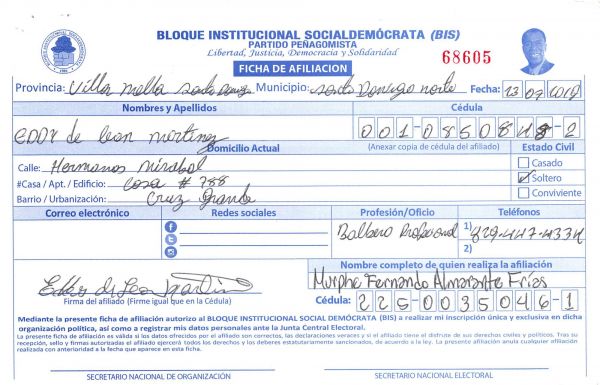 BLOQUE INSTITUCIONAL SOCIALDEMÓCRATA (BIS)
PARTIDO PEÑAGOMISTA
Libertad, Justicia, Democracia y Solidaridad
68605
FICHA DE AFILIACION
Provincia: Villa Mella Santo Domingo Municipio: Santo Domingo norte Fecha:
Nombres y Apellidos Cédula
EDDY de leon martinez
Domicilio Actual (Anexar copia de cédula del afiliado) Estado Civil
Calle: Hermanas mirabal Casado
#Casa / Apt. / Edificio: Casa # 788 Soltero
Barrio / Urbanización: Cruz Grande Conviviente
Correo electrónico Redes sociales Profesión/Oficio Teléfonos
Balbero Profesional 1) 829-447-4334
2)
Nombre completo de quien realiza la afiliación
Murphe Fernando Almarante Frías
Firma del afiliado (Firme igual que en la Cédula) Cédula: 225-0035046-1
Mediante la presente ficha de afiliación autorizo al BLOQUE INSTITUCIONAL SOCIAL DEMÓCRATA (BIS) a realizar mi inscripción única y exclusiva en dicha
organización política, así como a registrar mis datos personales ante la Junta Central Electoral.
La presente ficha de afiliación es válida si los datos ofrecidos por el afiliado son correctos, las declaraciones veraces y si el afiliado tiene el disfrute de sus derechos civiles y políticos. Tras su
recepción, sello y firmas autorizadas el afiliado ejercerá todos los derechos y los deberes estatutariamente sancionados, de acuerdo a la ley. La presente afiliación anula cualquier afiliación
realizada con anterioridad a la fecha que aparece en esta ficha.
SECRETARIO NACIONAL DE ORGANIZACIÓN SECRETARIO NACIONAL ELECTORAL